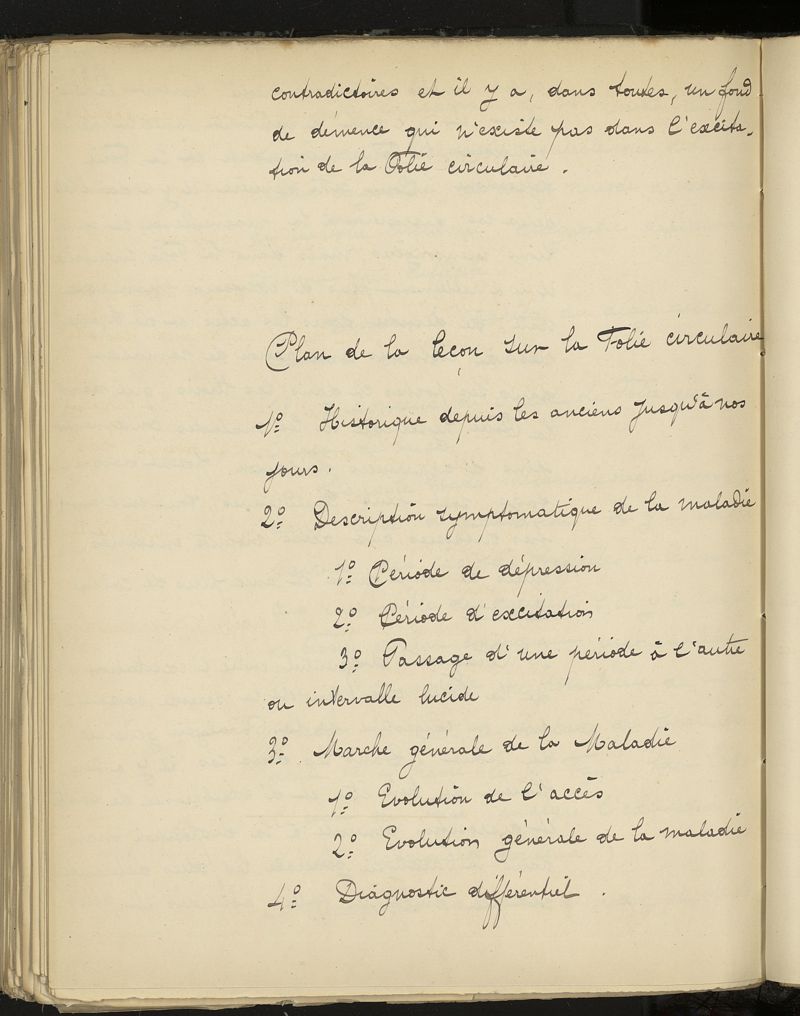 contradictoires et il y a, dans toutes, un fond
de démence qui n'existe pas dans l'excita-
tion de la Folie circulaire.
Plan de la leçon sur la Folie circulaire
1º Historique depuis les anciens jusqu'à nos
jours.
2º Description symptomatique de la maladie
1º Période de dépression
2º Période d'excitation
3º Passage d'une période à l'autre
ou intervalle lucide
3º. Marche générale de la Maladie
1º Evolution de l'accès
2º Evolution générale de la maladie
4º Diagnostic différentiel.